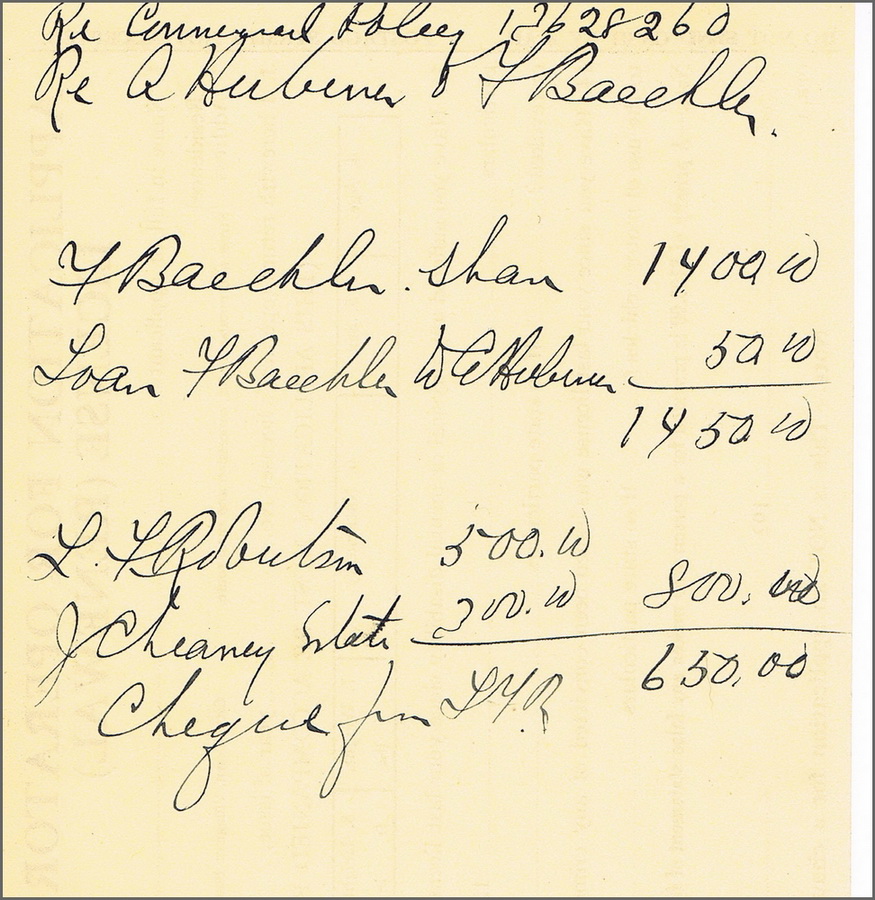 Re Connequad Policy 17628260
Re A Huebener & F Baechler.
F Baechler. Share 1400 00
Loan F Baechler W A Huebener 50 00
1450 00
L. F Robertson 500.00
J Cheaney Estate 300.00 800.00
Cheque from L F R 650.00